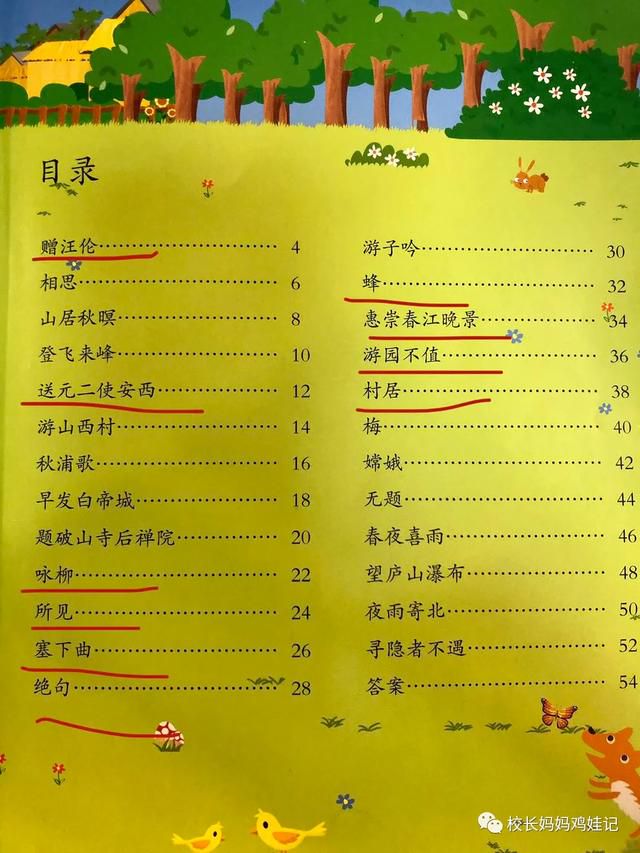 目录
赠汪伦 4
相思 6
山居秋暝 8
登飞来峰 10
送元二使安西 12
游山西村 14
秋浦歌 16
早发白帝城 18
题破山寺后禅院 20
咏柳 22
所见 24
塞下曲 26
绝句 28
游子吟 30
蜂 32
惠崇春江晚景 34
游园不值 36
村居 38
梅 40
嫦娥 42
无题 44
春夜喜雨 46
望庐山瀑布 48
夜雨寄北 50
寻隐者不遇 52
答案 54
校长妈妈鸡娃记